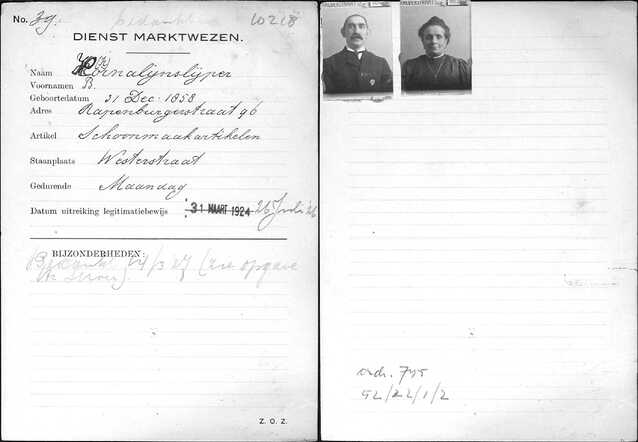 No. 39. bedankt 10218
DIENST MARKTWEZEN.
Naam Kornalijnslijper
Voornamen B.
Geboortedatum 31 Dec. 1858
Adres Rapenburgerstraat 96
Artikel Schoonmaakartikelen
Staanplaats Westerstraat
Gedurende Maandag
Datum uitreiking legitimatiebewijs 31 MAART 1924 26 Juli 26
BIJZONDERHEDEN:
Bedankt 24/3 27 (zie opgave
Z. O. Z.
ordr. 745
52/22/1/2